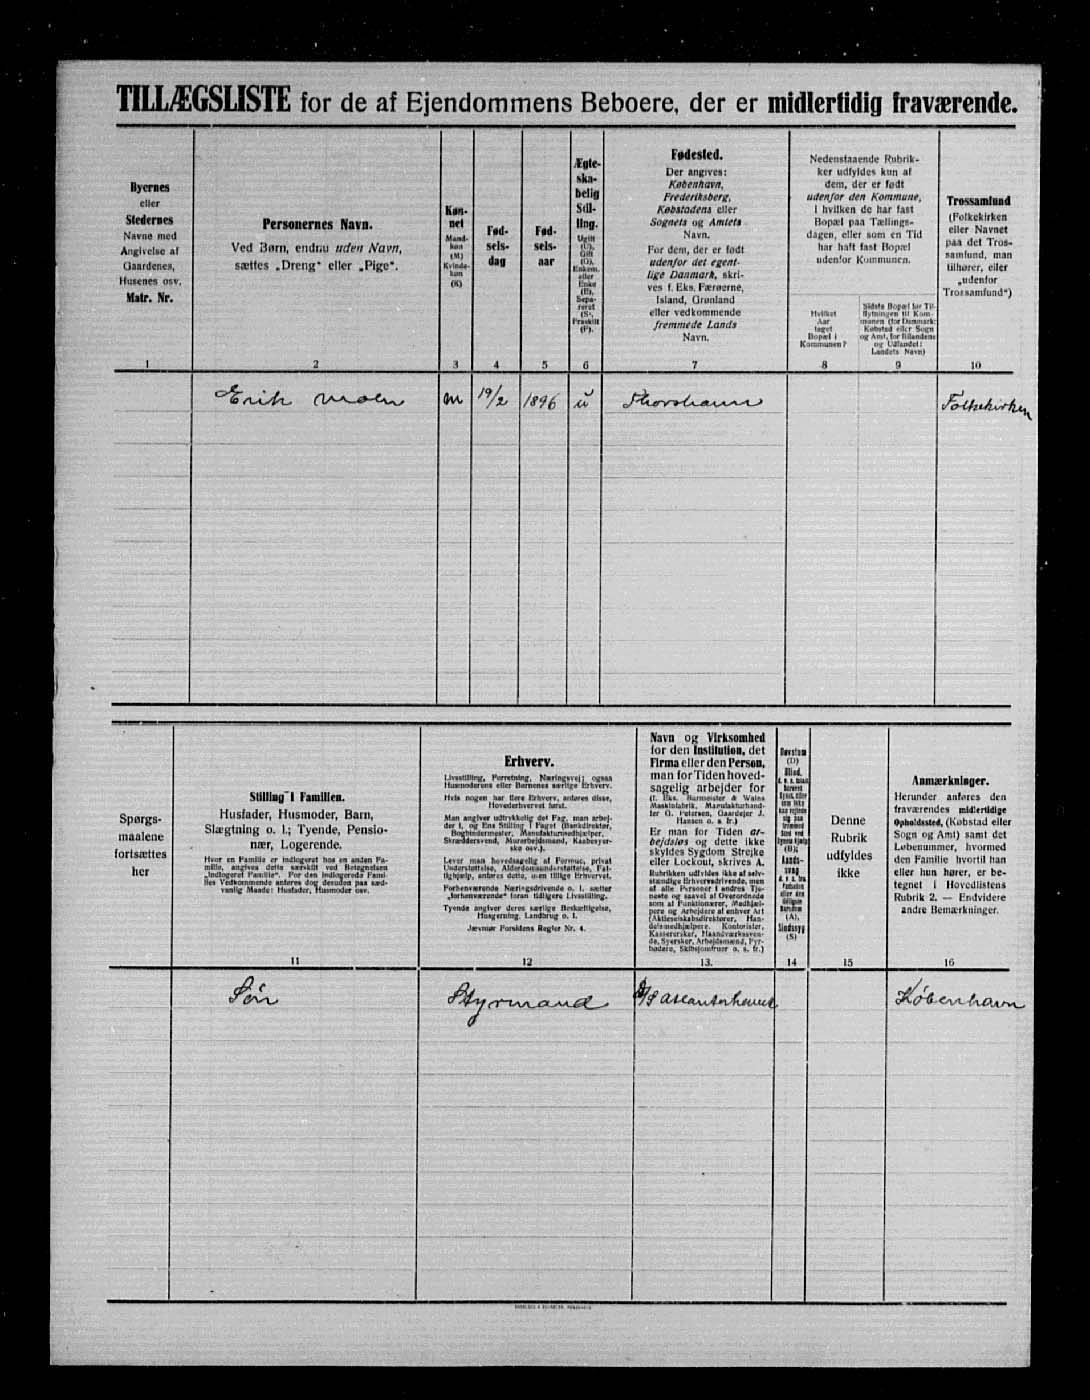 TILLÆGSLISTE for de af Ejendommens Beboere, der er midlertidig fraværende.
Byernes
eller
Stedernes
Navne med
Angivelse af
Gaardenes,
Husenes osv.
Matr. Nr.
1
Personernes Navn.
Ved Børn, endnu uden Navn,
sættes „Dreng“ eller „Pige“.
2
Køn-
net
Mand-
køn
(M)
Kvinde-
køn
(K)
3
Fød-
sels-
dag
4
Fød-
sels-
aar
5
Ægte-
ska-
belig
Stil-
ling.
Ugift
(U),
Gift
(G),
Enkem.
eller
Enke
(E),
Sepa-
reret
(S),
Fraskilt
(F).
6
Fødested.
Der angives:
København,
Frederiksberg,
Købstadens eller
Sognets og Amtets
Navn.
For dem, der er født
udenfor det egent-
lige Danmark, skri-
ves f. Eks. Færøerne,
Island, Grønland
eller vedkommende
fremmede Lands
Navn.
7
Nedenstaaende Rubrik-
ker udfyldes kun af
dem, der er født
udenfor den Kommune,
i hvilken de har fast
Bopæl paa Tællings-
dagen, eller som en Tid
har haft fast Bopæl
udenfor Kommunen.
Hvilket
Aar
taget
Bopæl i
Kommunen?
8
Sidste Bopæl før Til-
flytningen til Kom-
munen (for Danmark:
Købstad eller Sogn
og Amt, for Bilandene
og Udlandet:
Landets Navn)
9
Trossamfund
(Folkekirken
eller Navnet
paa det Tros-
samfund, man
tilhører, eller
„udenfor
Trossamfund“)
10
Erik M 19/2 1896 U Thorshavn Folkekirken
Spørgs-
maalene
fortsættes
her
Stilling i Familien.
Husfader, Husmoder, Barn,
Slægtning o. l.; Tyende, Pensio-
nær, Logerende.
Hvor en Familie er indlogeret hos en anden Fa-
milie, angives dette særskilt ved Betegnelsen
„indlogeret Familie“. For den indlogerede Fami-
lies Vedkommende anføres dog desuden paa sæd-
vanlig Maade: Husfader, Husmoder osv.
11
Erhverv.
Livsstilling, Forretning, Næringsvej; ogsaa
Husmoderens eller Børnenes særlige Erhverv.
Hvis nogen har flere Erhverv, anføres disse,
Hovederhvervet først.
Man angiver udtrykkelig det Fag, man arbej-
der i, og Ens Stilling i Faget (Bankdirektør,
Bogbindermester, Manufakturmedhjælper,
Skræddersvend, Murerbejdsmand, Kaabesyer-
ske osv.).
Lever man hovedsagelig af Formue, privat
Understøttelse, Alderdomsunderstøttelse, Fat-
tighjælp, anføres dette, uden tillige Erhvervet.
Forhenværende Næringsdrivende o. l. sætter
„forhenværende“ foran tidligere Livsstilling.
Tyende angiver deres særlige Beskæftigelse,
Husgerning, Landbrug o. l.
Jævnfør Forsidens Regler Nr. 4.
12
Navn og Virksomhed
for den Institution, det
Firma eller den Person,
man for Tiden hoved-
sagelig arbejder for
(f. Eks. Burmeister & Wains
Maskinfabrik, Manufakturhand-
ler G. Petersen, Gaardejer J.
Hansen o. s. fr.)
Er man for Tiden ar-
bejdsløs og dette ikke
skyldes Sygdom Strejke
eller Lockout, skrives A.
Rubrikken udfyldes ikke af selv-
stændige Erhvervsdrivende, men
af alle Personer i andres Tje-
neste og saavel af Overordnede
som af Funktionærer, Medhjæl-
pere og Arbejdere af enhver Art
(Aktieselskabsdirektører, Han-
delsmedhjælpere, Kontorister,
Kassererske, Haandværkssven-
de, Syersker, Arbejdsmænd, Fyr-
bødere, Skibsjomfruer o. s. fr.)
13.
Døvstum
(D)
Blind,
14
Denne
Rubrik
udfyldes
ikke
15
Anmærkninger.
Herunder anføres den
fraværendes midlertidige
Opholdssted, (Købstad eller
Sogn og Amt) samt det
Løbenummer, hvormed
den Familie hvortil han
eller hun hører, er be-
tegnet i Hovedlistens
Rubrik 2. — Endvidere
andre Bemærkninger.
16
Søn Styrmand København